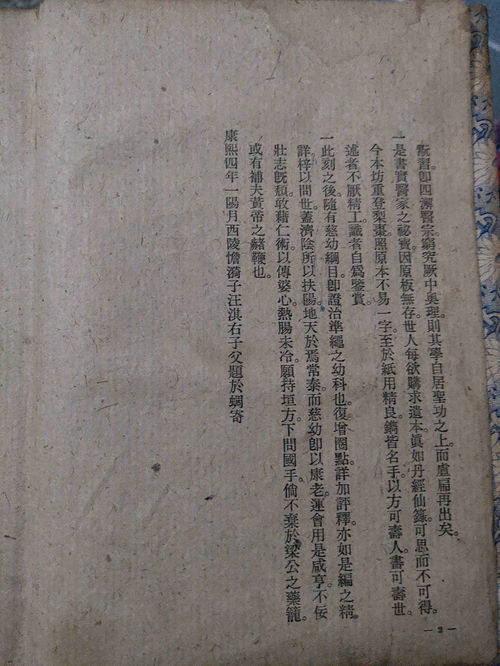 翫習。卽四瀆醫宗。窮究厥中奧理。則其學自居聖功之上。而盧扁再出矣。
一是書實醫家之祕寶。因原板無存。世人每欲購求遺本。眞如丹經仙籙。可思而不可得。
今本坊重登梨棗。照原本不易一字。至於紙用精良。鐫皆名手。以方可壽人。書可壽世。
述者不厭精工。識者自爲鑒賞。
一此刻之後。隨有慈幼綱目。卽證治準繩之幼科也。復增圈點。詳加評釋。亦如是編之精
詳。梓以問世。蓋濟陰所以扶陽。地天於焉常泰。而慈幼卽以康老。運會用是咸亨。不佞
壯志旣頹。敢藉仁術以傳婆心。熱腸未冷。願持垣方下問國手。倘不棄於梁公之藥籠。
或有補夫黃帝之赭鞭也。
康熙四年一陽月西陵憺漪子汪淇右子父題於蜩寄
— 2 —